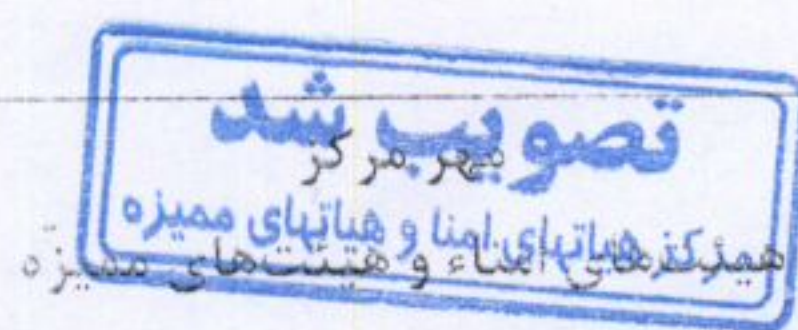 تصویب شد
مهر مرکز
مرکز هیاتهای امنا و هیاتهای ممیزه
هیئت‌های امناء و هیئت‌های ممیزه